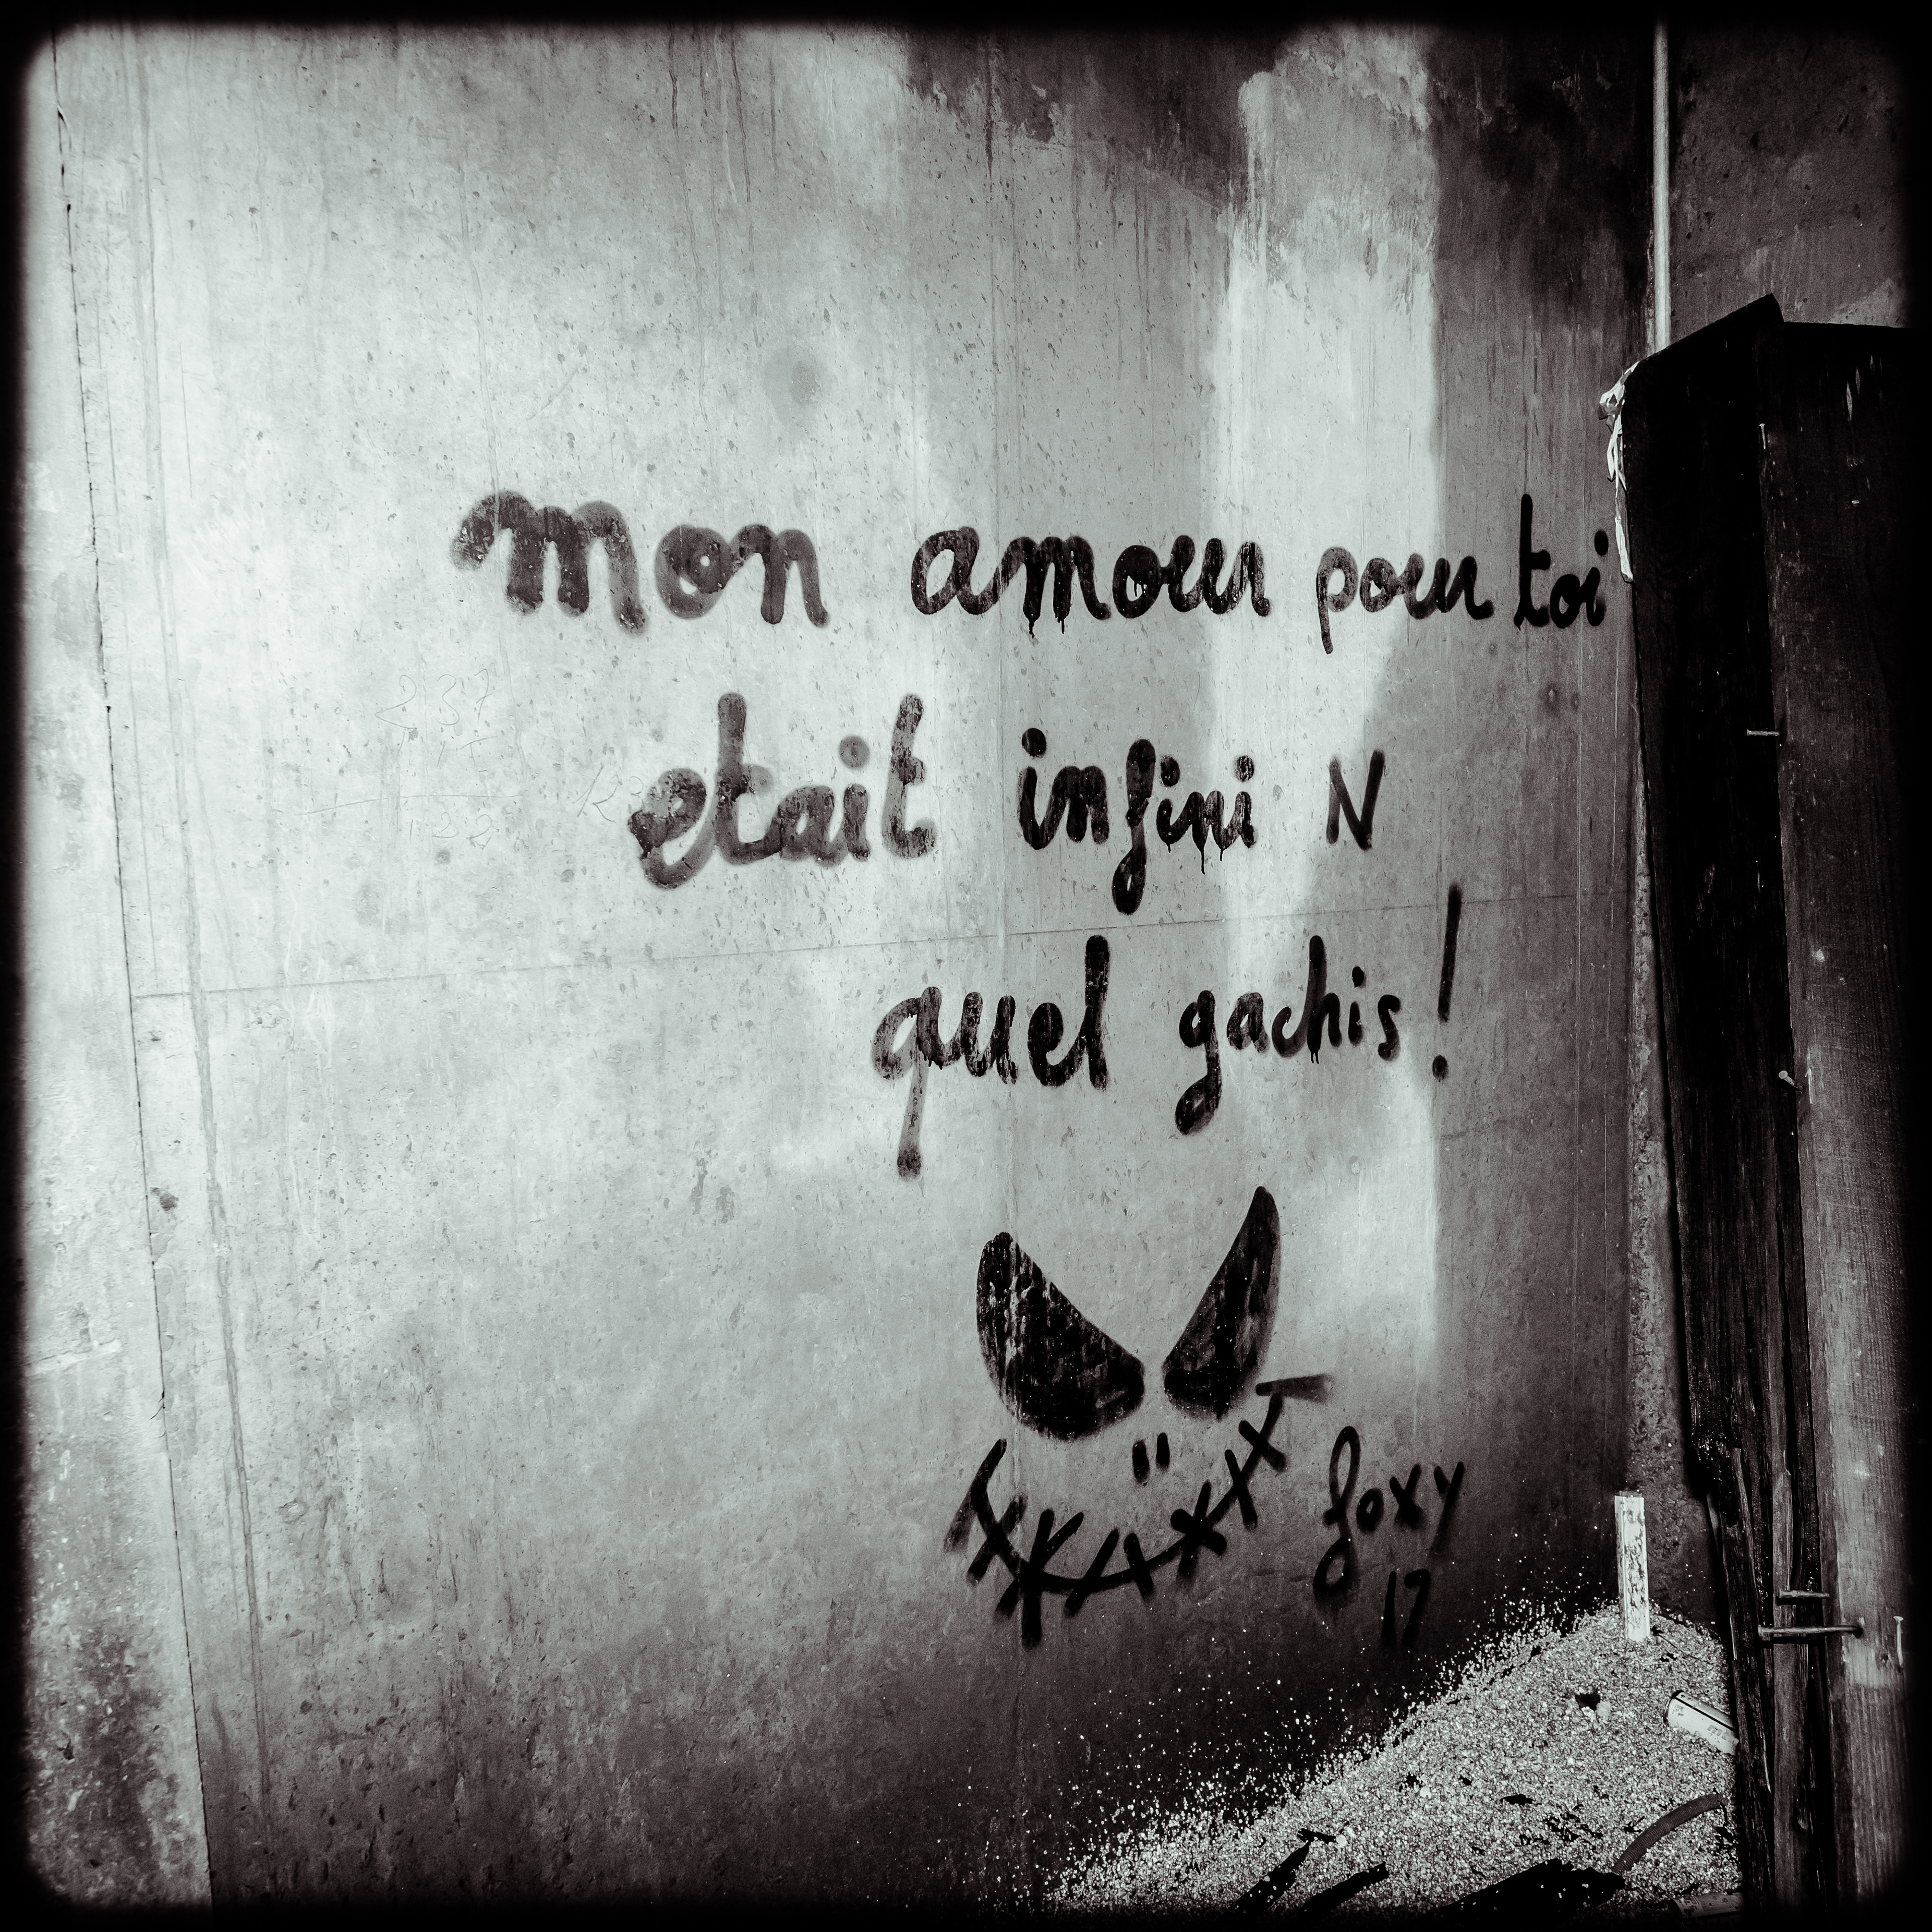 mon amour pour toi
etait infini N
quel gachis!
foxy
17